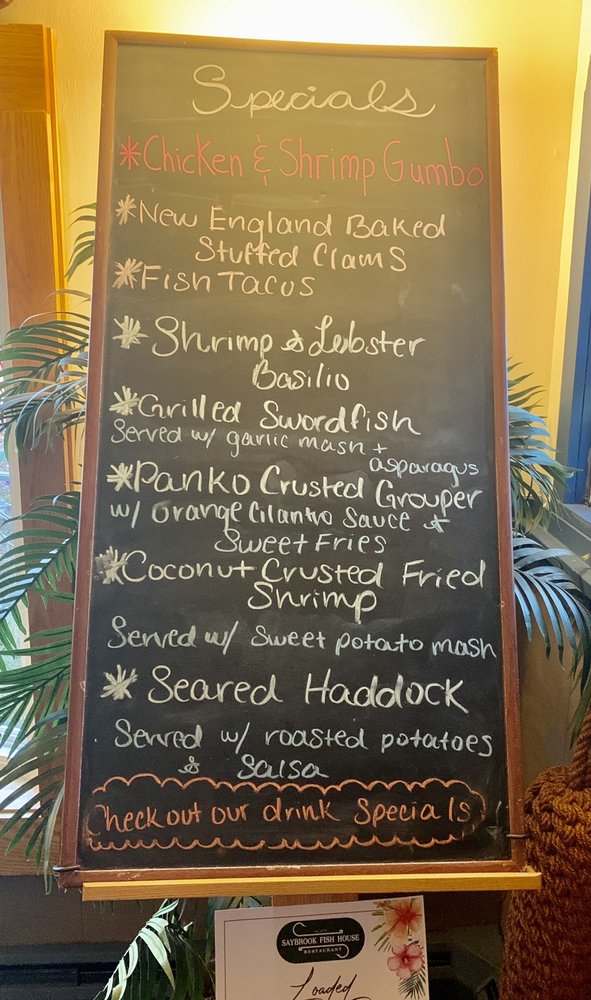 Specials
*Chicken & Shrimp Gumbo
*New England Baked
Stuffed Clams
*Fish Tacos
*Shrimp & Lobster
Basilio
*Grilled Swordfish
Served w/ garlic mash +
asparagus
*Panko Crusted Grouper
w/ Orange Cilantro Sauce &
Sweet Fries
*Coconut Crusted Fried
Shrimp
Served w/ sweet potato mash
* Seared Haddock
Served w/ roasted potatoes
& Salsa
Check out our drink Specials
SAYBROOK FISH HOUSE
RESTAURANT
Loaded